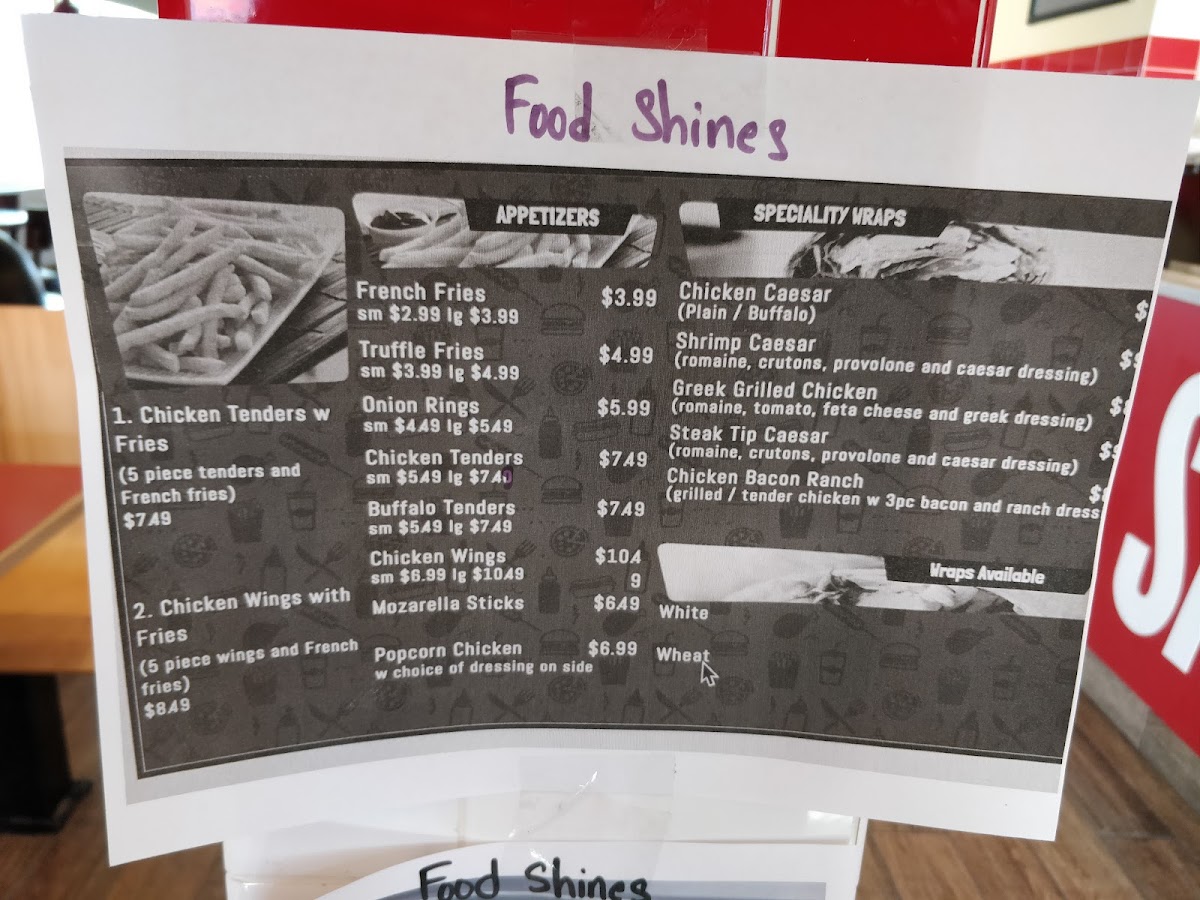 Food Shines
1. Chicken Tenders w
Fries
(5 piece tenders and
French fries)
$7.49
2. Chicken Wings with
Fries
(5 piece wings and French
fries)
$8.49
APPETIZERS
French Fries $3.99
sm $2.99 lg $3.99
Truffle Fries $4.99
sm $3.99 lg $4.99
Onion Rings $5.99
sm $4.49 lg $5.49
Chicken Tenders $7.49
sm $5.49 lg $7.4
Buffalo Tenders $7.49
sm $5.49 lg $7.49
Chicken Wings $10.4
sm $6.99 lg $10.49 9
Mozarella Sticks $6.49
Popcorn Chicken $6.99
w choice of dressing on side
SPECIALITY WRAPS
Chicken Caesar $
(Plain / Buffalo)
Shrimp Caesar
(romaine, crutons, provolone and caesar dressing) $
Greek Grilled Chicken
(romaine, tomato, feta cheese and greek dressing) $
Steak Tip Caesar
(romaine, crutons, provolone and caesar dressing) $
Chicken Bacon Ranch $
(grilled / tender chicken w 3pc bacon and ranch dress
Wraps Available
White
Wheat
Food Shines